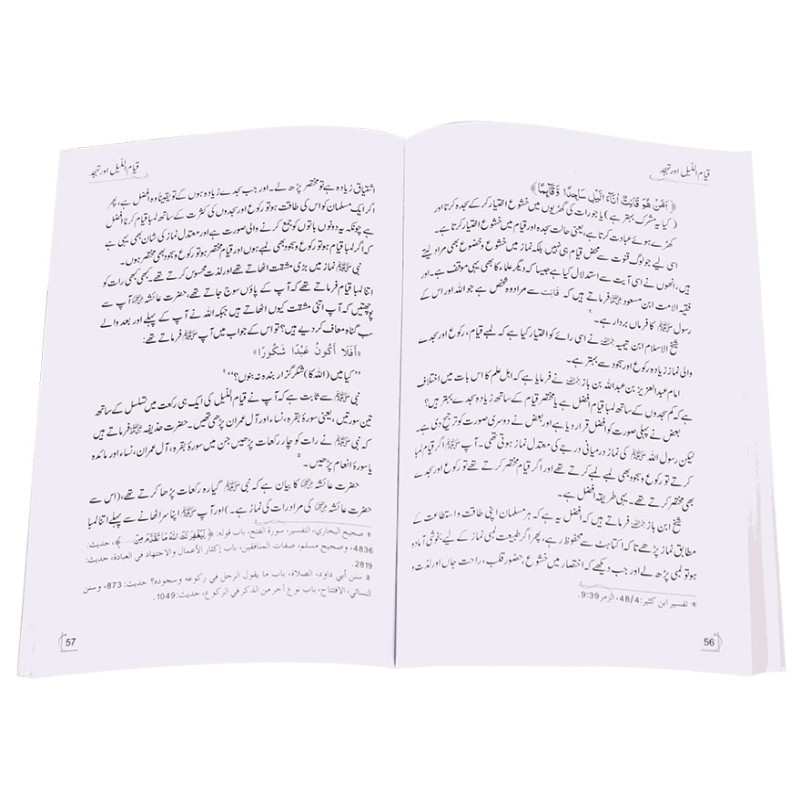 قیام اللیل اور تہجد
﴿ اَمَّنْ هُوَ قَانِتٌ اٰنَآءَ الَّيْلِ سَاجِدًا وَّقَآئِمًا ﴾
(کیا یہ مشرک بہتر ہے) یا جو رات کی گھڑیوں میں خشوع اختیار کر کے سجدہ کرتا اور
کھڑے ہوئے عبادت کرتا ہے، یعنی حالت سجدہ اور قیام میں خشوع اختیار کرتا ہے۔
اسی لیے جو لوگ قنوت سے محض قیام ہی نہیں بلکہ نماز میں خشوع و خضوع بھی مراد لیتے
ہیں، انھوں نے اسی آیت سے استدلال کیا ہے جیسا کہ دیگر علماء کا بھی یہی موقف ہے اور
فقیہ الامت ابن مسعود رضی اللہ عنہ فرماتے ہیں کہ قَانِتٌ سے مراد وہ شخص ہے جو اللہ اور اس کے
رسول ﷺ کا فرماں بردار ہے۔
شیخ الاسلام ابن تیمیہ رحمہ اللہ نے اسی رائے کو اختیار کیا ہے کہ لمبے قیام، رکوع اور سجدے
والی نماز زیادہ رکوع اور سجود سے بہتر ہے۔
امام عبدالعزیز بن عبداللہ بن باز رحمہ اللہ نے فرمایا ہے کہ اہل علم کا اس بات میں اختلاف
ہے کہ کم سجدوں کے ساتھ لمبا قیام افضل ہے یا مختصر قیام کے ساتھ زیادہ سجدے بہتر ہیں؟
بعض نے پہلی صورت کو افضل قرار دیا ہے اور بعض نے دوسری صورت کو ترجیح دی ہے۔
لیکن رسول اللہ ﷺ کی نماز درمیانی درجے کی معتدل نماز ہوتی تھی۔ آپ ﷺ اگر لمبا قیام
کرتے تو رکوع و سجود بھی لمبے لمبے کرتے تھے اور اگر قیام مختصر کرتے تھے تو رکوع اور سجدے
بھی مختصر کرتے تھے۔ یہی طریقہ افضل ہے۔
شیخ ابن باز رحمہ اللہ فرماتے ہیں کہ افضل یہ ہے کہ ہر مسلمان اپنی طاقت و استطاعت کے
مطابق نماز پڑھے تاکہ اکتاہٹ سے محفوظ رہے، پھر اگر طبیعت لمبی نماز کے لیے بخوشی آمادہ
ہو تو لمبی پڑھ لے اور جب دیکھے کہ اختصار میں خشوع، حضور قلب، راحت جاں اور لذت و
تفسیر ابن کثیر: 48/4، الزمر 9:39.
56
قیام اللیل اور تہجد
اشتیاق زیادہ ہے تو مختصر پڑھ لے۔ اور جب سجدے زیادہ ہوں گے تو یقیناً وہ افضل ہے، پھر
اگر ایک مسلمان کو اس کی طاقت ہو تو رکوع اور سجدوں کی کثرت کے ساتھ لمبا قیام کرنا افضل
ہے چونکہ یہ دونوں باتوں کو جمع کرنے والی صورت ہے اور معتدل نماز کی شان بھی یہی ہے
کہ اگر لمبا قیام ہو تو رکوع و سجود بھی لمبے ہوں اور قیام مختصر ہو تو رکوع و سجود بھی مختصر ہوں۔
نبی ﷺ نماز میں بڑی مشقت اٹھاتے تھے اور لذت محسوس کرتے تھے۔ کبھی کبھی رات کو
اتنا لمبا قیام فرماتے تھے کہ آپ کے پاؤں سوج جاتے تھے، حضرت عائشہ رضی اللہ عنہا آپ سے
پوچھتیں کہ آپ اتنی مشقت کیوں اٹھاتے ہیں جبکہ اللہ نے آپ کے پہلے اور بعد والے
سب گناہ معاف کر دیے ہیں؟ تو اس کے جواب میں آپ ﷺ فرماتے تھے:
«أَفَلَا أَكُونُ عَبْدًا شَكُورًا»
”کیا میں (اللہ کا) شکر گزار بندہ نہ بنوں؟“
نبی ﷺ سے ثابت ہے کہ آپ نے قیام اللیل کی ایک ہی رکعت میں تسلسل کے ساتھ
تین سورتیں، یعنی سورۂ بقرہ، نساء اور آل عمران پڑھی تھیں۔ حضرت حذیفہ رضی اللہ عنہ فرماتے ہیں
کہ نبی ﷺ نے رات کو چار رکعات پڑھیں جن میں سورۂ بقرہ، آل عمران، نساء اور مائدہ
یا سورۂ انعام پڑھیں۔
حضرت عائشہ رضی اللہ عنہا کا بیان ہے کہ نبی ﷺ گیارہ رکعات پڑھا کرتے تھے، (اس سے
ان کی مراد رات کی نماز ہے۔) اور آپ ﷺ اپنا سر اٹھانے سے پہلے اتنا لمبا
صحيح البخاري، التفسير، سورة الفتح، باب قوله: ﴿ لِيَغْفِرَ لَكَ اللهُ مَا تَقَدَّمَ مِنْ... ﴾، حديث:
4836، وصحيح مسلم، صفات المنافقين، باب إكثار الأعمال والاجتهاد في العبادة، حديث:
2819.
سنن أبي داود، الصلاة، باب ما يقول الرجل في ركوعه وسجوده؟ حديث: 873، وسنن
النسائي، الافتتاح، باب نوع آخر من الذكر في الركوع، حديث: 1049.
57